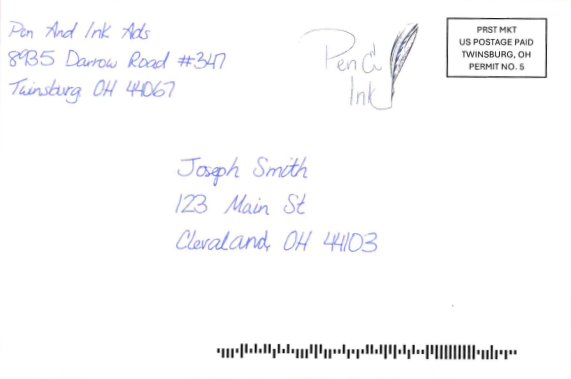 Pen And Ink Ads
8935 Darrow Road #347
Twinsburg OH 44067
Pen &
Ink
PRST MKT
US POSTAGE PAID
TWINSBURG, OH
PERMIT NO. 5
Joseph Smith
123 Main St
Clevaland, OH 44103